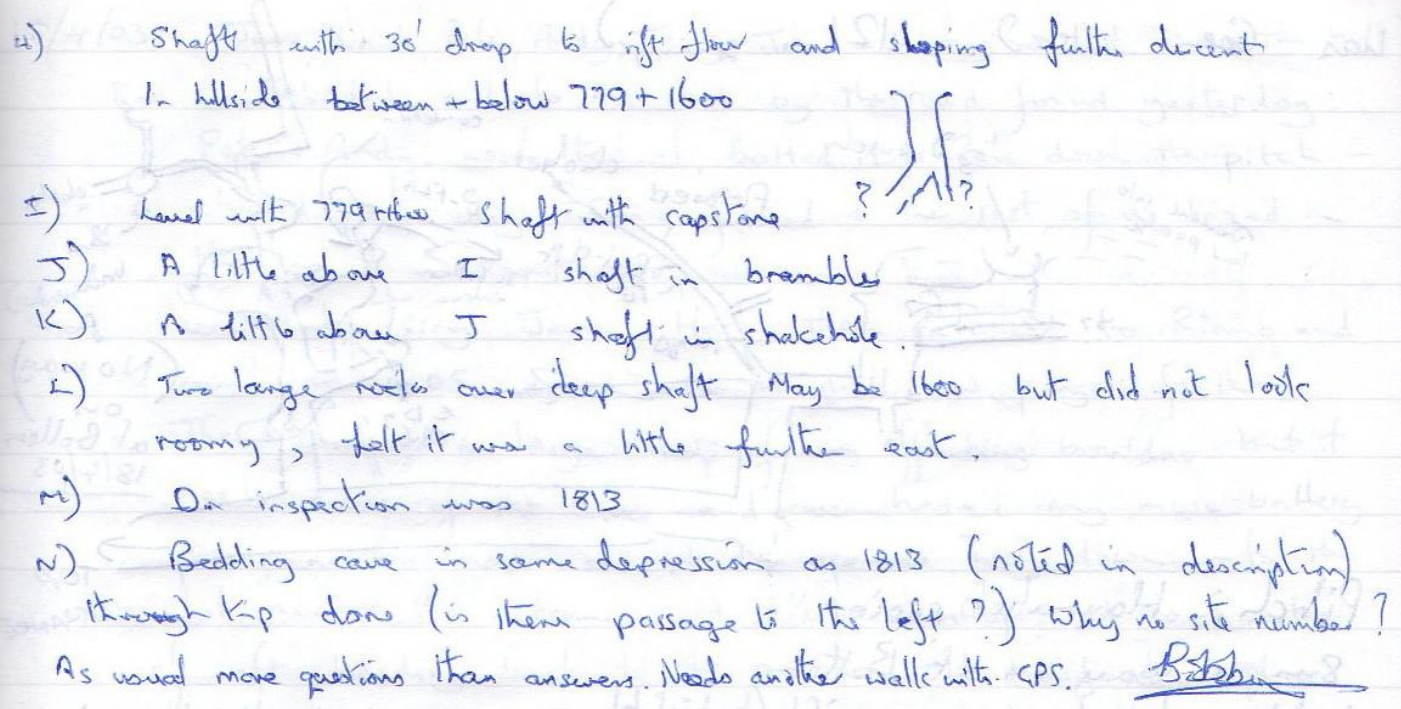 H) Shaft with 30' drop to rift floor and sloping further descent
In hillside between + below 779 + 1600
? ?
I) Level with 779 + 1600 shaft with capstone
J) A little above I shaft in brambles
K) A little above J shaft in shakehole.
L) Two large rocks over deep shaft May be 1600 but did not look
roomy, felt it was a little further east.
M) On inspection was 1813
N) Bedding cave in same depression as 1813 (noted in description)
through trip done (is there passage to the left?) Why no site number?
As usual more questions than answers. Needs another walk with GPS.